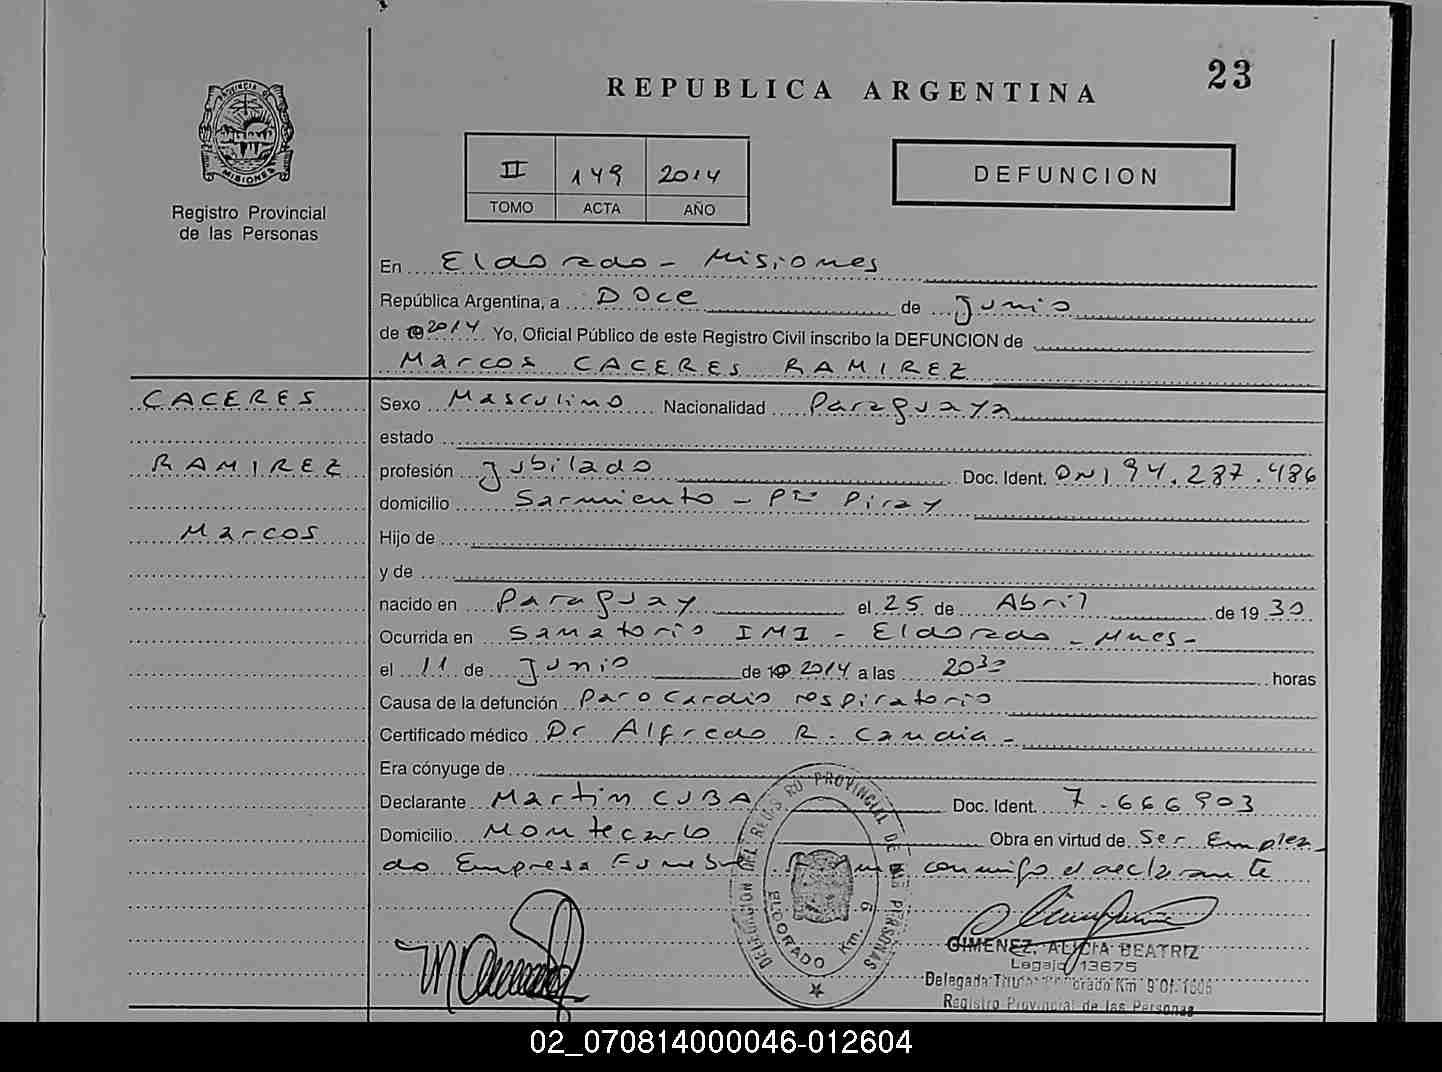 23
REPUBLICA ARGENTINA
PROVINCIA DE
MISIONES
Registro Provincial
de las Personas
II 149 2014
TOMO ACTA AÑO
DEFUNCION
En Eldorado - Misiones
República Argentina, a Doce de Junio
de 2014 Yo, Oficial Público de este Registro Civil inscribo la DEFUNCION de
Marcos CACERES RAMIREZ
CACERES
RAMIREZ
Marcos
Sexo Masculino Nacionalidad Paraguaya
estado
profesión Jubilado Doc. Ident. DNI 94.287.486
domicilio Sarmiento - Pto Piray
Hijo de
y de
nacido en Paraguay el 25 de Abril de 1930
Ocurrida en Sanatorio IMI - Eldorado - Mnes -
el 11 de Junio de 2014 a las 20 30 horas
Causa de la defunción Paro cardio respiratorio
Certificado médico Dr Alfredo R. Candia -
Era cónyuge de
Declarante Martin CUBA Doc. Ident. 7.666903
Domicilio Montecarlo Obra en virtud de Ser Emplea-
do Empresa Funebre conmigo el declarante
DELEGACION DEL REGISTRO PROVINCIAL DE LAS PERSONAS
ELDORADO Km. 9
GIMENEZ, ALICIA BEATRIZ
Legajo 13675
Delegada Titular Eldorado Km 9 Of. 1606
Registro Provincial de las Personas
02_070814000046-012604